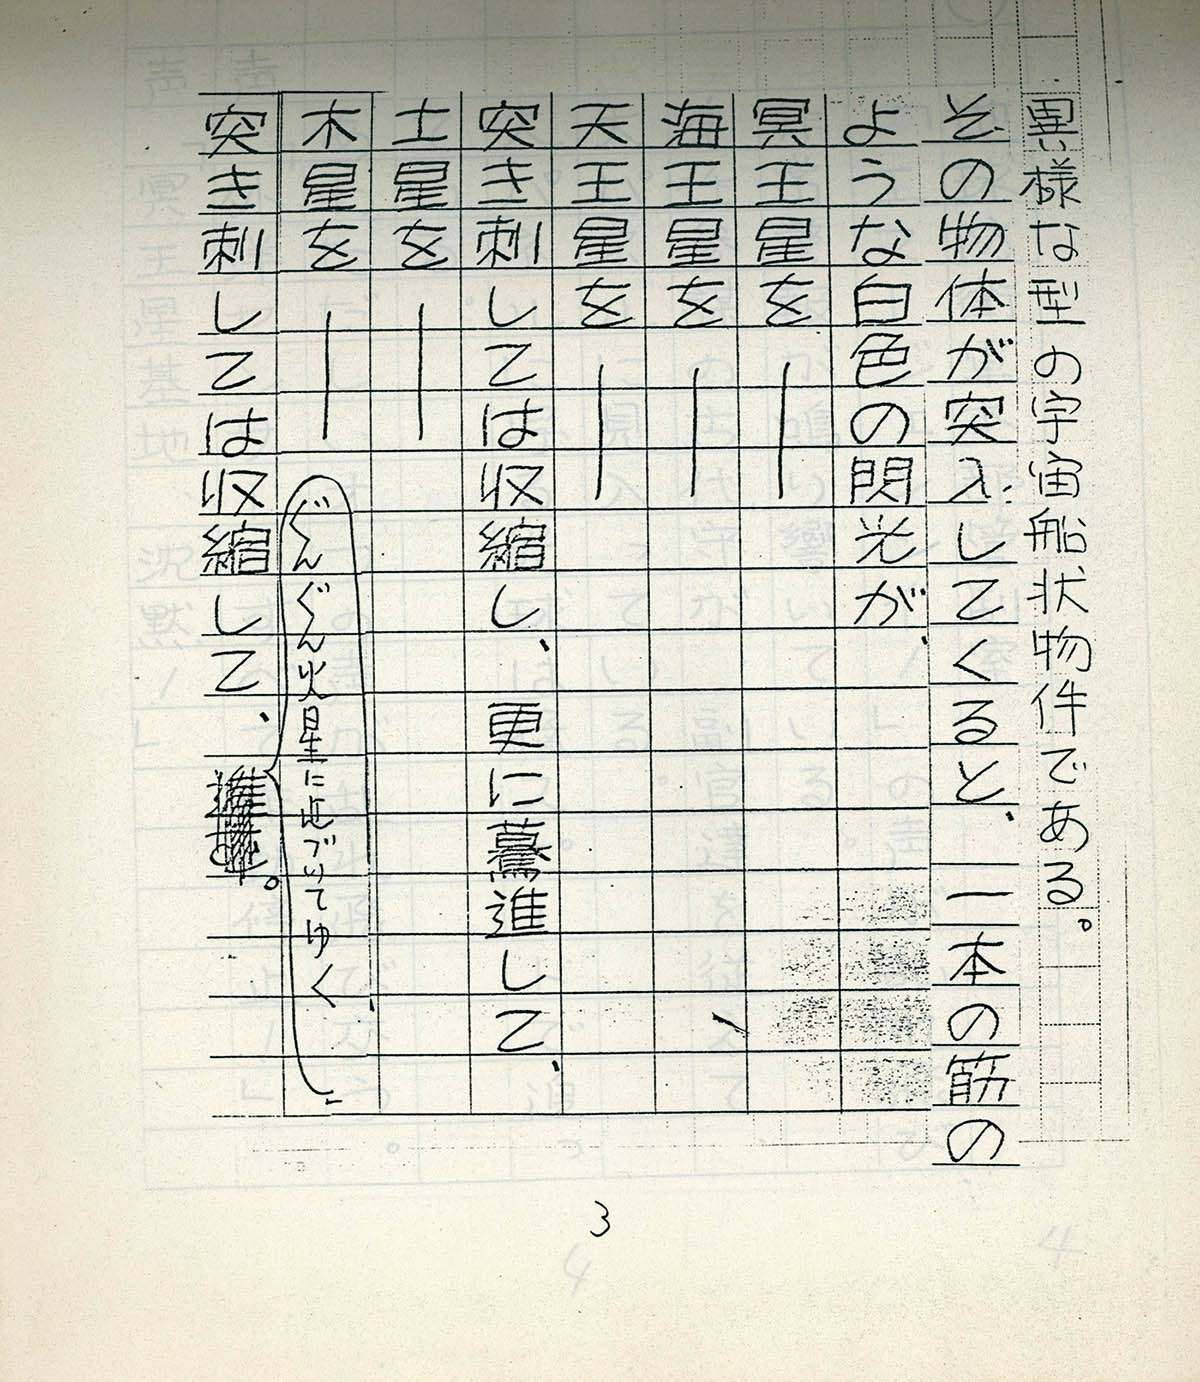 異様な型の宇宙船状物件である。
その物体が突入してくると、一本の筋の
ような白色の閃光が、
冥王星を――
海王星を――
天王星を――
突き刺しては収縮し、更に驀進して、
土星を――
木星を――
突き刺しては収縮して、
ぐんぐん火星に近づいてゆく。
3